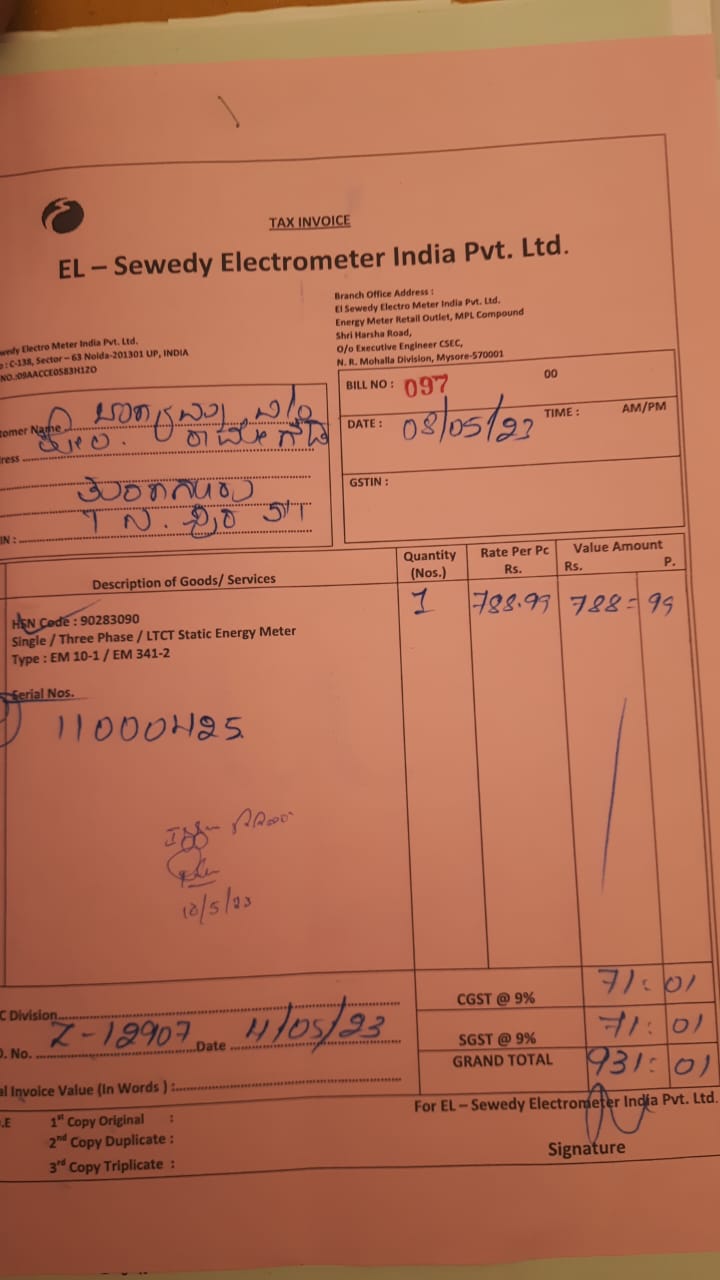 TAX INVOICE
EL – Sewedy Electrometer India Pvt. Ltd.
wedy Electro Meter India Pvt. Ltd.
: C-138, Sector – 63 Noida-201301 UP, INDIA
NO.:09AACCE0583H1ZO
Branch Office Address :
El Sewedy Electro Meter India Pvt. Ltd.
Energy Meter Retail Outlet, MPL Compound
Shri Harsha Road,
O/o Executive Engineer CSEC,
N. R. Mohalla Division, Mysore-570001
tomer Name
ress
IN :
BILL NO : 097 00
DATE : 08/05/23 TIME : AM/PM
GSTIN :
Description of Goods/ Services Quantity (Nos.) Rate Per Pc Rs. Value Amount Rs. P.
HSN Code : 90283090 1 788.99 788=99
Single / Three Phase / LTCT Static Energy Meter
Type : EM 10-1 / EM 341-2
Serial Nos.
11000425
10/5/23
C Division
CGST @ 9% 71: 01
. No. Z-12907 Date 4/05/23
SGST @ 9% 71: 01
GRAND TOTAL 931: 01
al Invoice Value (In Words ) :
For EL – Sewedy Electrometer India Pvt. Ltd.
.E 1st Copy Original :
2nd Copy Duplicate :
3rd Copy Triplicate :
Signature